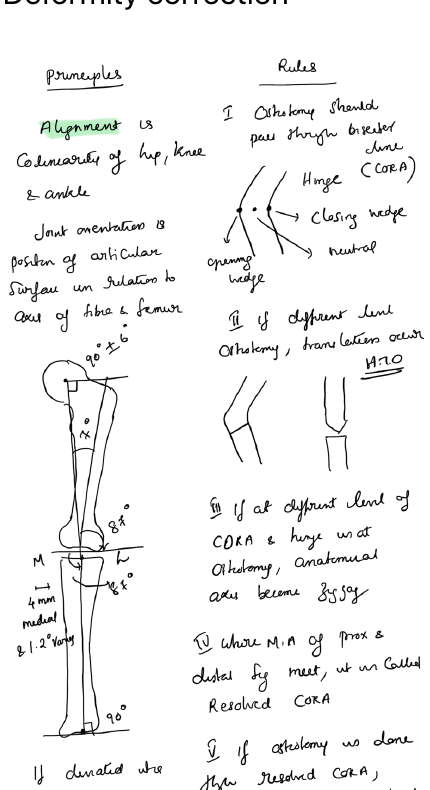 Deformity correction
Principles
Alignment is
Colinearity of hip, knee
& ankle
Joint orientation is
position of articular
surface in relation to
axis of tibia & femur
90° ± 6°
7°
87°
M L
87°
4 mm
medial
& 1.2° varus
90°
If deviated
Rules
I Osteotomy should
pass through bisector
line
(CORA)
Hinge
Closing wedge
neutral
opening
wedge
II if different level
Osteotomy, translation occur
H.T.O
III If at different level of
CORA & hinge is at
Osteotomy, anatomical
axis become zigzag
IV where M.A of prox &
distal seg meet, it is called
Resolved CORA
V if osteotomy is done
thru resolved CORA,